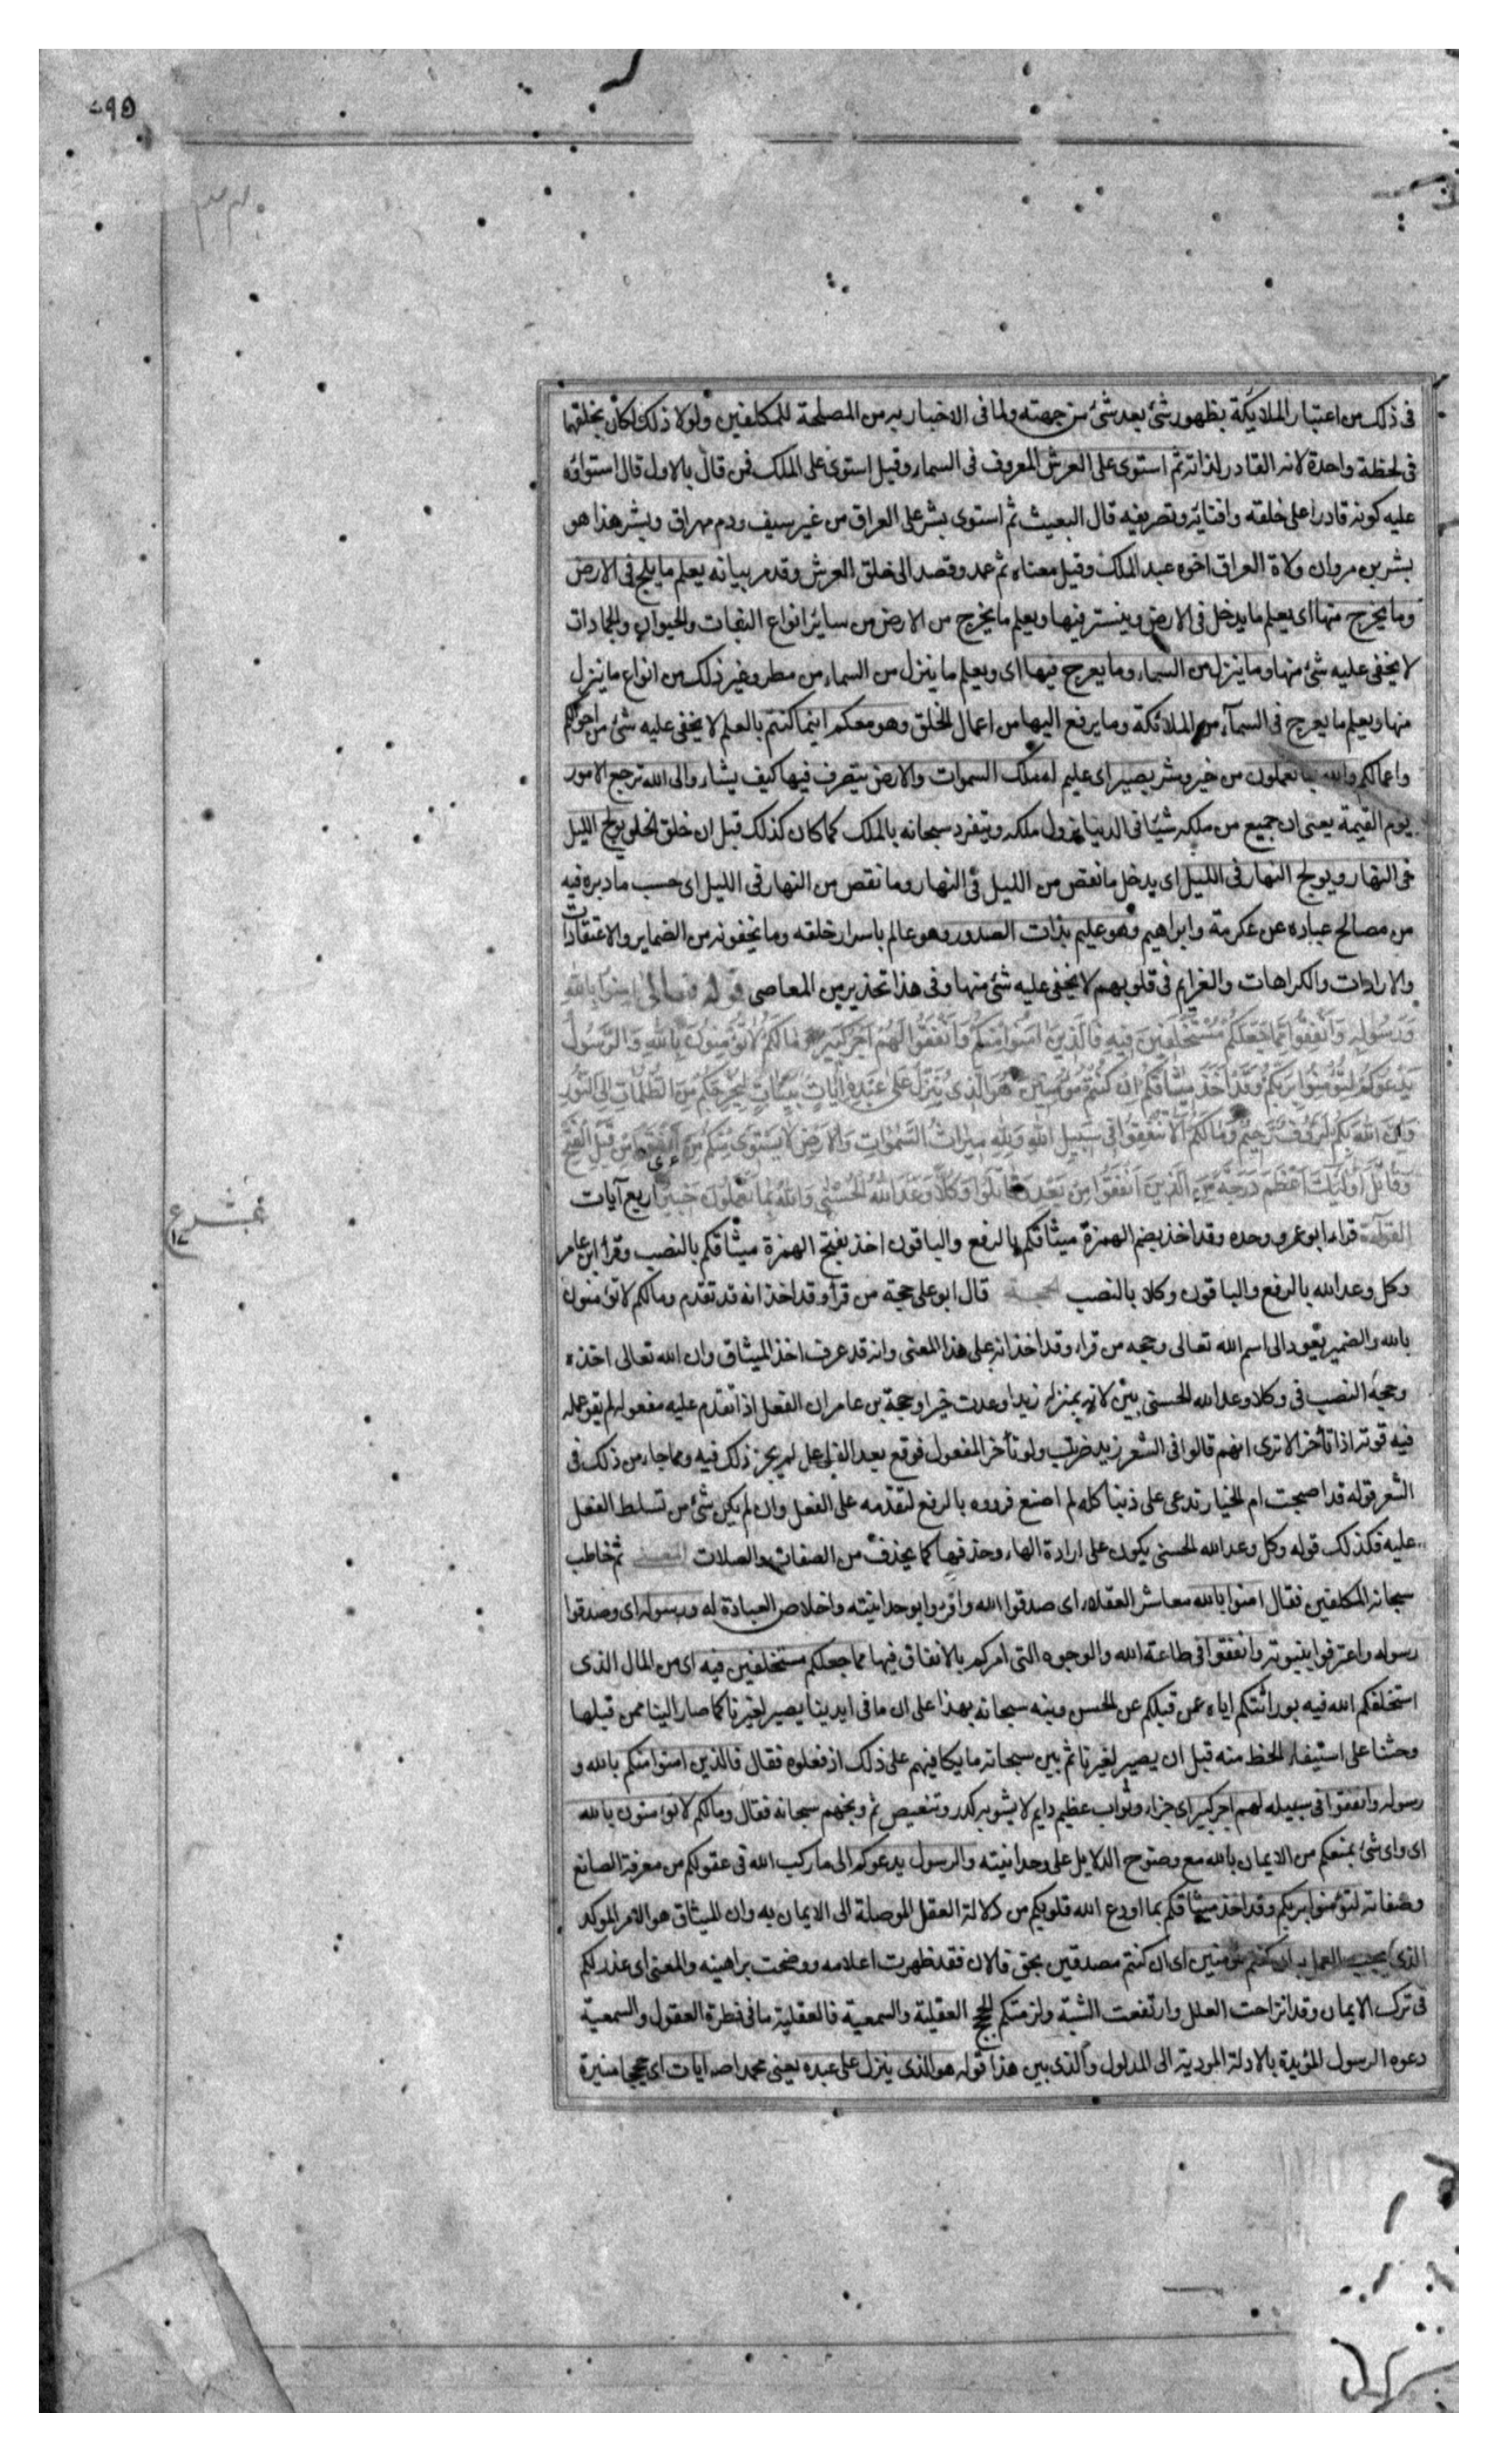 ٥٩٥
فى ذلك من اعتبار الملايكة بظهور شئ بعد شئ من جهته ولما فى الاخبار به من المصلحة للمكلفين ولولا ذلك لكان يخلقهما
فى لحظة واحدة لانه القادر لذاته ثم استوى على العرش المعروف فى السماء وقيل استوى على الملك فمن قال بالاول قال استواؤه
عليه كونه قادرا على خلقه وافنائه وتصريفه قال البعيث ثم استوى بشر على العراق من غير سيف ودم مهراق وبشر هذا هو
بشر بن مروان ولاة العراق اخوه عبد الملك وقيل معناه ثم عمد وقصد الى خلق العرش وقدم بيانه يعلم ما يلج فى الارض
وما يخرج منها اى يعلم ما يدخل فى الارض ويستتر فيها ويعلم ما يخرج من الارض من سائر انواع النبات والحيوان والجمادات
لا يخفى عليه شئ منها وما ينزل من السماء وما يعرج فيها اى ويعلم ما ينزل من السماء من مطر وغير ذلك من انواع ما ينزل
منها ويعلم ما يعرج فى السمآء من الملائكة وما يرفع اليها من اعمال الخلق وهو معكم اينما كنتم بالعلم لا يخفى عليه شئ من احوالكم
واعمالكم والله بما تعملون من خير وشر بصير اى عليم له ملك السموات والارض يتصرف فيها كيف يشاء والى الله ترجع الامور
يوم القيمة يعنى ان جميع من ملكه شيئا فى الدنيا يزول ملكه ويتفرد سبحانه بالملك كما كان كذلك قبل ان خلق الخلق يولج الليل
فى النهار ويولج النهار فى الليل اى يدخل ما نقص من الليل فى النهار وما نقص من النهار فى الليل اى حسب ما دبره فيه
من مصالح عباده عن عكرمة وابراهيم وهو عليم بذات الصدور وهو عالم باسرار خلقه وما يخفونه من الضماير والاعتقادات
والارادات والكراهات والعزايم فى قلوبهم لا يخفى عليه شئ منها وفى هذا تحذير من المعاصى قوله تعالى امنوا بالله
ورسوله وانفقوا مما جعلكم مستخلفين فيه فالذين امنوا منكم وانفقوا لهم اجر كبير وما لكم لا تؤمنون بالله والرسول
يدعوكم لتؤمنوا بربكم وقد اخذ ميثاقكم ان كنتم مؤمنين هو الذى ينزل على عبده ايات بينات ليخرجكم من الظلمات الى النور
وان الله بكم لرؤف رحيم وما لكم الا تنفقوا فى سبيل الله ولله ميراث السموات والارض لا يستوى منكم من انفق من قبل الفتح
وقاتل اولئك اعظم درجة من الذين انفقوا من بعد وقاتلوا وكلا وعد الله الحسنى والله بما تعملون خبير اربع آيات
القرآءة قراء ابو عمرو وحده وقد اخذ بضم الهمزة ميثاقكم بالرفع والباقون اخذ بفتح الهمزة ميثاقكم بالنصب وقرأ ابن عامر
وكل وعد الله بالرفع والباقون وكلا بالنصب الحجة قال ابو على حجة من قرأ وقد اخذ انه قد تقدم وما لكم لا تؤمنون
بالله والضمير يعود الى اسم الله تعالى وحجه من قراء وقد اخذ انه على هذا المعنى وانه قد عرف اخذ الميثاق وان الله تعالى اخذه
وحجة النصب فى وكلا وعد الله الحسنى بين لانه بمنزله زيدا وعدت خيرا وحجة بن عامر ان الفعل اذا تقدم عليه مفعوله لم يقو عمله
فيه قوته اذا تأخر الا ترى انهم قالوا فى الشعر زيد ضربت ولو تأخر المفعول فوقع بعد الفاعل لم يجز ذلك فيه ومما جاء من ذلك فى
الشعر قوله قد اصبحت ام الخيار تدعى على ذنبا كله لم اصنع فرووه بالرفع لتقدمه على الفعل وان لم يكن شئ من تسلط الفعل
عليه فكذلك قوله وكل وعد الله الحسنى يكون على ارادة الهاء وحذفها كما يحذف من الصفات والصلات المعنى ثم خاطب
سبحانه المكلفين فقال امنوا بالله معاشر العقلاء اى صدقوا الله واقروا بوحدانيته واخلاص العبادة له ورسوله اى وصدقوا
رسوله واعترفوا بنبوته وانفقوا فى طاعة الله والوجوه التى امركم بالانفاق فيها مما جعلكم مستخلفين فيه اى من المال الذى
استخلفكم الله فيه بوراثتكم اياه عمن قبلكم عن الحسن ونبه سبحانه بهذا على ان ما فى ايدينا يصير لغيرنا كما صار الينا ممن قبلها
وحثنا على استيفاء الحظ منه قبل ان يصير لغيرنا ثم بين سبحانه ما يكافيهم على ذلك اذ فعلوه فقال فالذين امنوا منكم بالله و
رسوله وانفقوا فى سبيله لهم اجر كبير اى جزاء وثواب عظيم دايم لا يشوبه كدر وتنغيص ثم وبخهم سبحانه فقال وما لكم لا تؤمنون بالله
اى واى شئ يمنعكم من الايمان بالله مع وضوح الدلايل على وحدانيته والرسول يدعوكم الى ما ركب الله فى عقولكم من معرفة الصانع
وصفاته لتؤمنوا بربكم وقد اخذ ميثاقكم بما اودع الله قلوبكم من دلالة العقل الموصلة الى الايمان به وان الميثاق هو الامر الموكد
الذى يجب العمل به ان كنتم مؤمنين اى ان كنتم مصدقين بحق فالان فقد ظهرت اعلامه ووضحت براهينه والمعنى اى عذر لكم
فى ترك الايمان وقد انزاحت العلل وارتفعت الشبة ولزمتكم الحجج العقلية والسمعية فالعقلية ما فى فطرة العقول والسمعية
دعوه الرسول المؤيدة بالادلة المودية الى المدلول والذى بين هذا قوله هو الذى ينزل على عبده يعنى محمدا صه ايات اى حججا منيرة